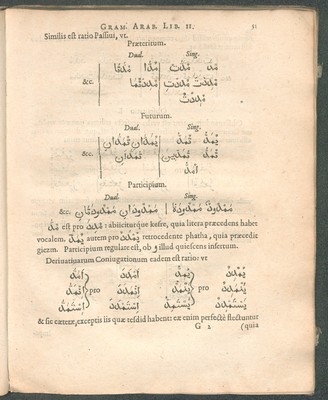 GRAM. ARAB. LIB. II. 51
Similis est ratio Passiui, vt.
Præteritum.
Dual. Sing.
&c. مُدَّا مُدَّتَا مُدَّ مُدَّتْ
مُدِدْتُمَا مُدِدْتَ مُدِدْتِ
مُدِدْتُ
Futurum.
Dual. Sing.
&c. يُمَدَّانِ تُمَدَّانِ يُمَدُّ تُمَدُّ
تُمَدَّانِ تُمَدُّ تُمَدِّينَ
أُمَدُّ
Participium.
Dual. Sing.
&c. مَمْدُودَانِ مَمْدُودَتَانِ مَمْدُودٌ مَمْدُودَةٌ
مُدَّ est pro مُدِدَ: abiiciturque kesre, quia litera præcedens habet
vocalem. يُمَدُّ autem pro يُمْدَدُ retrocedente phatha, quia præcedit
giezm. Participium regulare est, ob و illud quiescens insertum.
Deriuatiuarum Coniugationum eadem est ratio: vt
pro pro
& sic cæteræ, exceptis iis quæ tesdid habent: eæ enim perfectè flectuntur
G 2 (quia